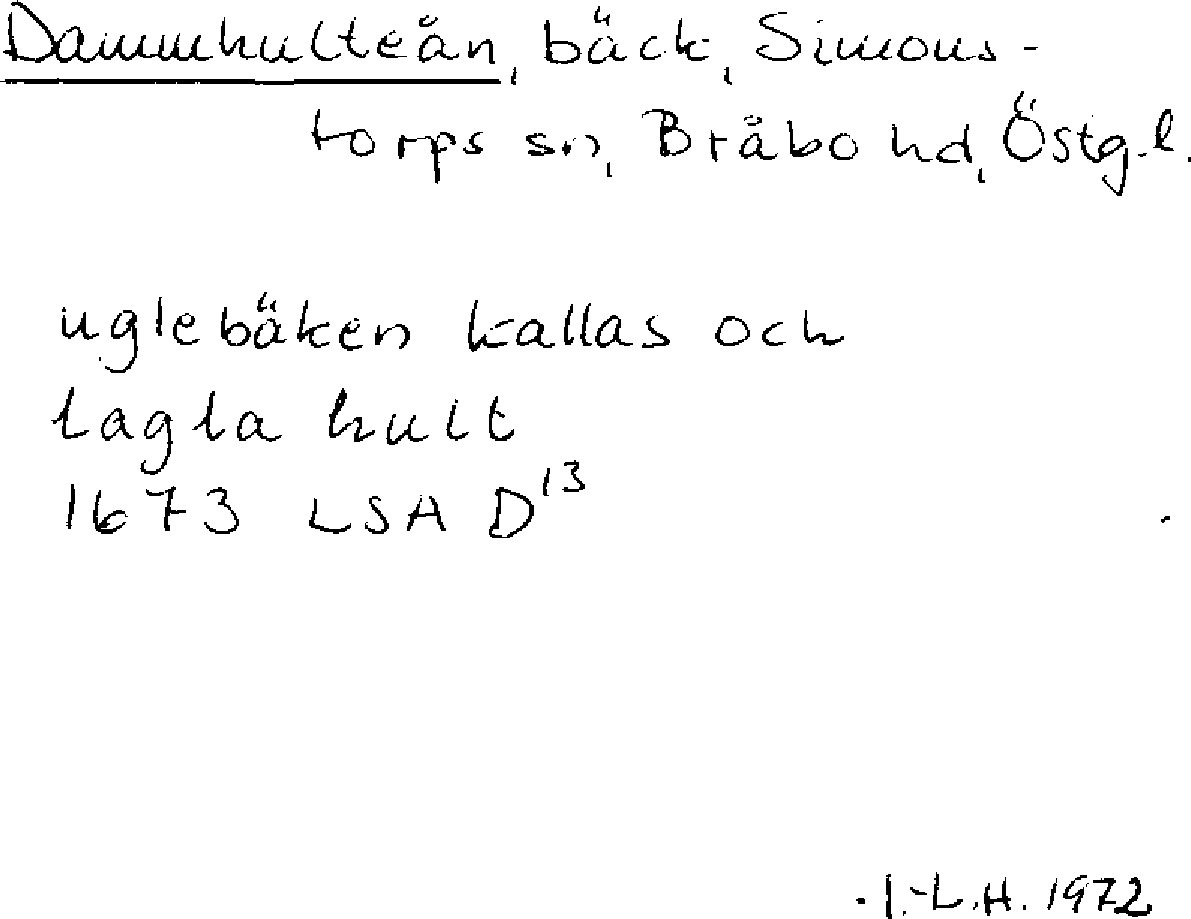 Dammhulteån, bäck, Simons-
torps sn, Bråbo hd, Östg.l.
uglebäken kallas och
lagla hult
1673 LSA D13
I.-L.H. 1972